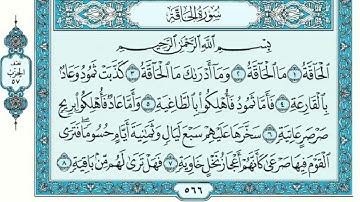 سُورَةُ الحَاقَّةِ
بِسْمِ اللَّهِ الرَّحْمَٰنِ الرَّحِيمِ
الْحَاقَّةُ ١ مَا الْحَاقَّةُ ٢ وَمَا أَدْرَاكَ مَا الْحَاقَّةُ ٣ كَذَّبَتْ ثَمُودُ وَعَادٌ
بِالْقَارِعَةِ ٤ فَأَمَّا ثَمُودُ فَأُهْلِكُوا بِالطَّاغِيَةِ ٥ وَأَمَّا عَادٌ فَأُهْلِكُوا بِرِيحٍ
صَرْصَرٍ عَاتِيَةٍ ٦ سَخَّرَهَا عَلَيْهِمْ سَبْعَ لَيَالٍ وَثَمَانِيَةَ أَيَّامٍ حُسُومًا فَتَرَى
الْقَوْمَ فِيهَا صَرْعَىٰ كَأَنَّهُمْ أَعْجَازُ نَخْلٍ خَاوِيَةٍ ٧ فَهَلْ تَرَىٰ لَهُم مِّن بَاقِيَةٍ ٨
٥٦٦
الحزب
٥٧